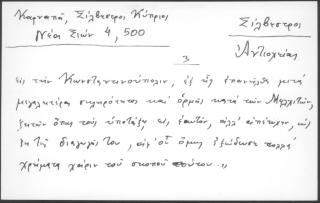 Καρναπᾶ, Σίλβεστρος Κύπριος
Νέα Σιών 4, 500
Σίλβεστρος
Ἀντιοχείας
3
εἰς τὴν Κωνσταντινούπολιν, ἐξ ἧς ἐπανῆλθε μετὰ
μεγαλητέρας σκληρότητος καὶ ὁρμῆς κατὰ τῶν Μελχιτῶν,
ζητῶν ὅπως τοὺς ὑποτάξῃ εἰς ἑαυτόν, ἀλλ' ἀπέτυχεν, ὡς
ἐκ τῆς διαγωγῆς του, ἀφ' οὗ ὅμως ἐξώδευσε πολλὰ
χρήματα χάριν τοῦ σκοποῦ τούτου..,